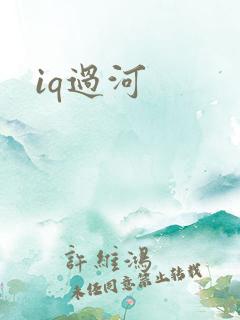 iq過河
許維鴻
未經同意禁止轉載